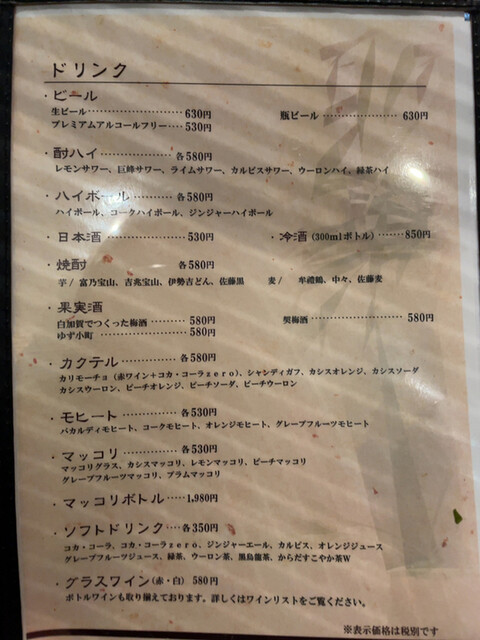 ドリンク
・ビール
生ビール…………………630円　瓶ビール…………………630円
プレミアムアルコールフリー……530円
・酎ハイ……………各580円
レモンサワー、巨峰サワー、ライムサワー、カルピスサワー、ウーロンハイ、緑茶ハイ
・ハイボール…………各580円
ハイボール、コークハイボール、ジンジャーハイボール
・日本酒…………………530円　・冷酒(300mlボトル)……850円
・焼酎　各580円
芋/ 富乃宝山、吉兆宝山、伊勢吉どん、佐藤黒　麦/ 牟禮鶴、中々、佐藤麦
・果実酒
白加賀でつくった梅酒………580円　梅酒…………………580円
ゆず小町…………………580円
・カクテル…………各580円
カリモーチョ (赤ワイン+コカ・コーラzero)、シャンディガフ、カシスオレンジ、カシスソーダ
カシスウーロン、ピーチオレンジ、ピーチソーダ、ピーチウーロン
・モヒート…………各530円
バカルディモヒート、コークモヒート、オレンジモヒート、グレープフルーツモヒート
・マッコリ…………各530円
マッコリグラス、カシスマッコリ、レモンマッコリ、ピーチマッコリ
グレープフルーツマッコリ、プラムマッコリ
・マッコリボトル……1,980円
・ソフトドリンク……各350円
コカ・コーラ、コカ・コーラzero、ジンジャーエール、カルピス、オレンジジュース
グレープフルーツジュース、緑茶、ウーロン茶、黒烏龍茶、からだすこやか茶W
・グラスワイン(赤・白) 580円
・ボトルワインも取り揃えております。詳しくはワインリストをご覧ください。
※表示価格は税別です